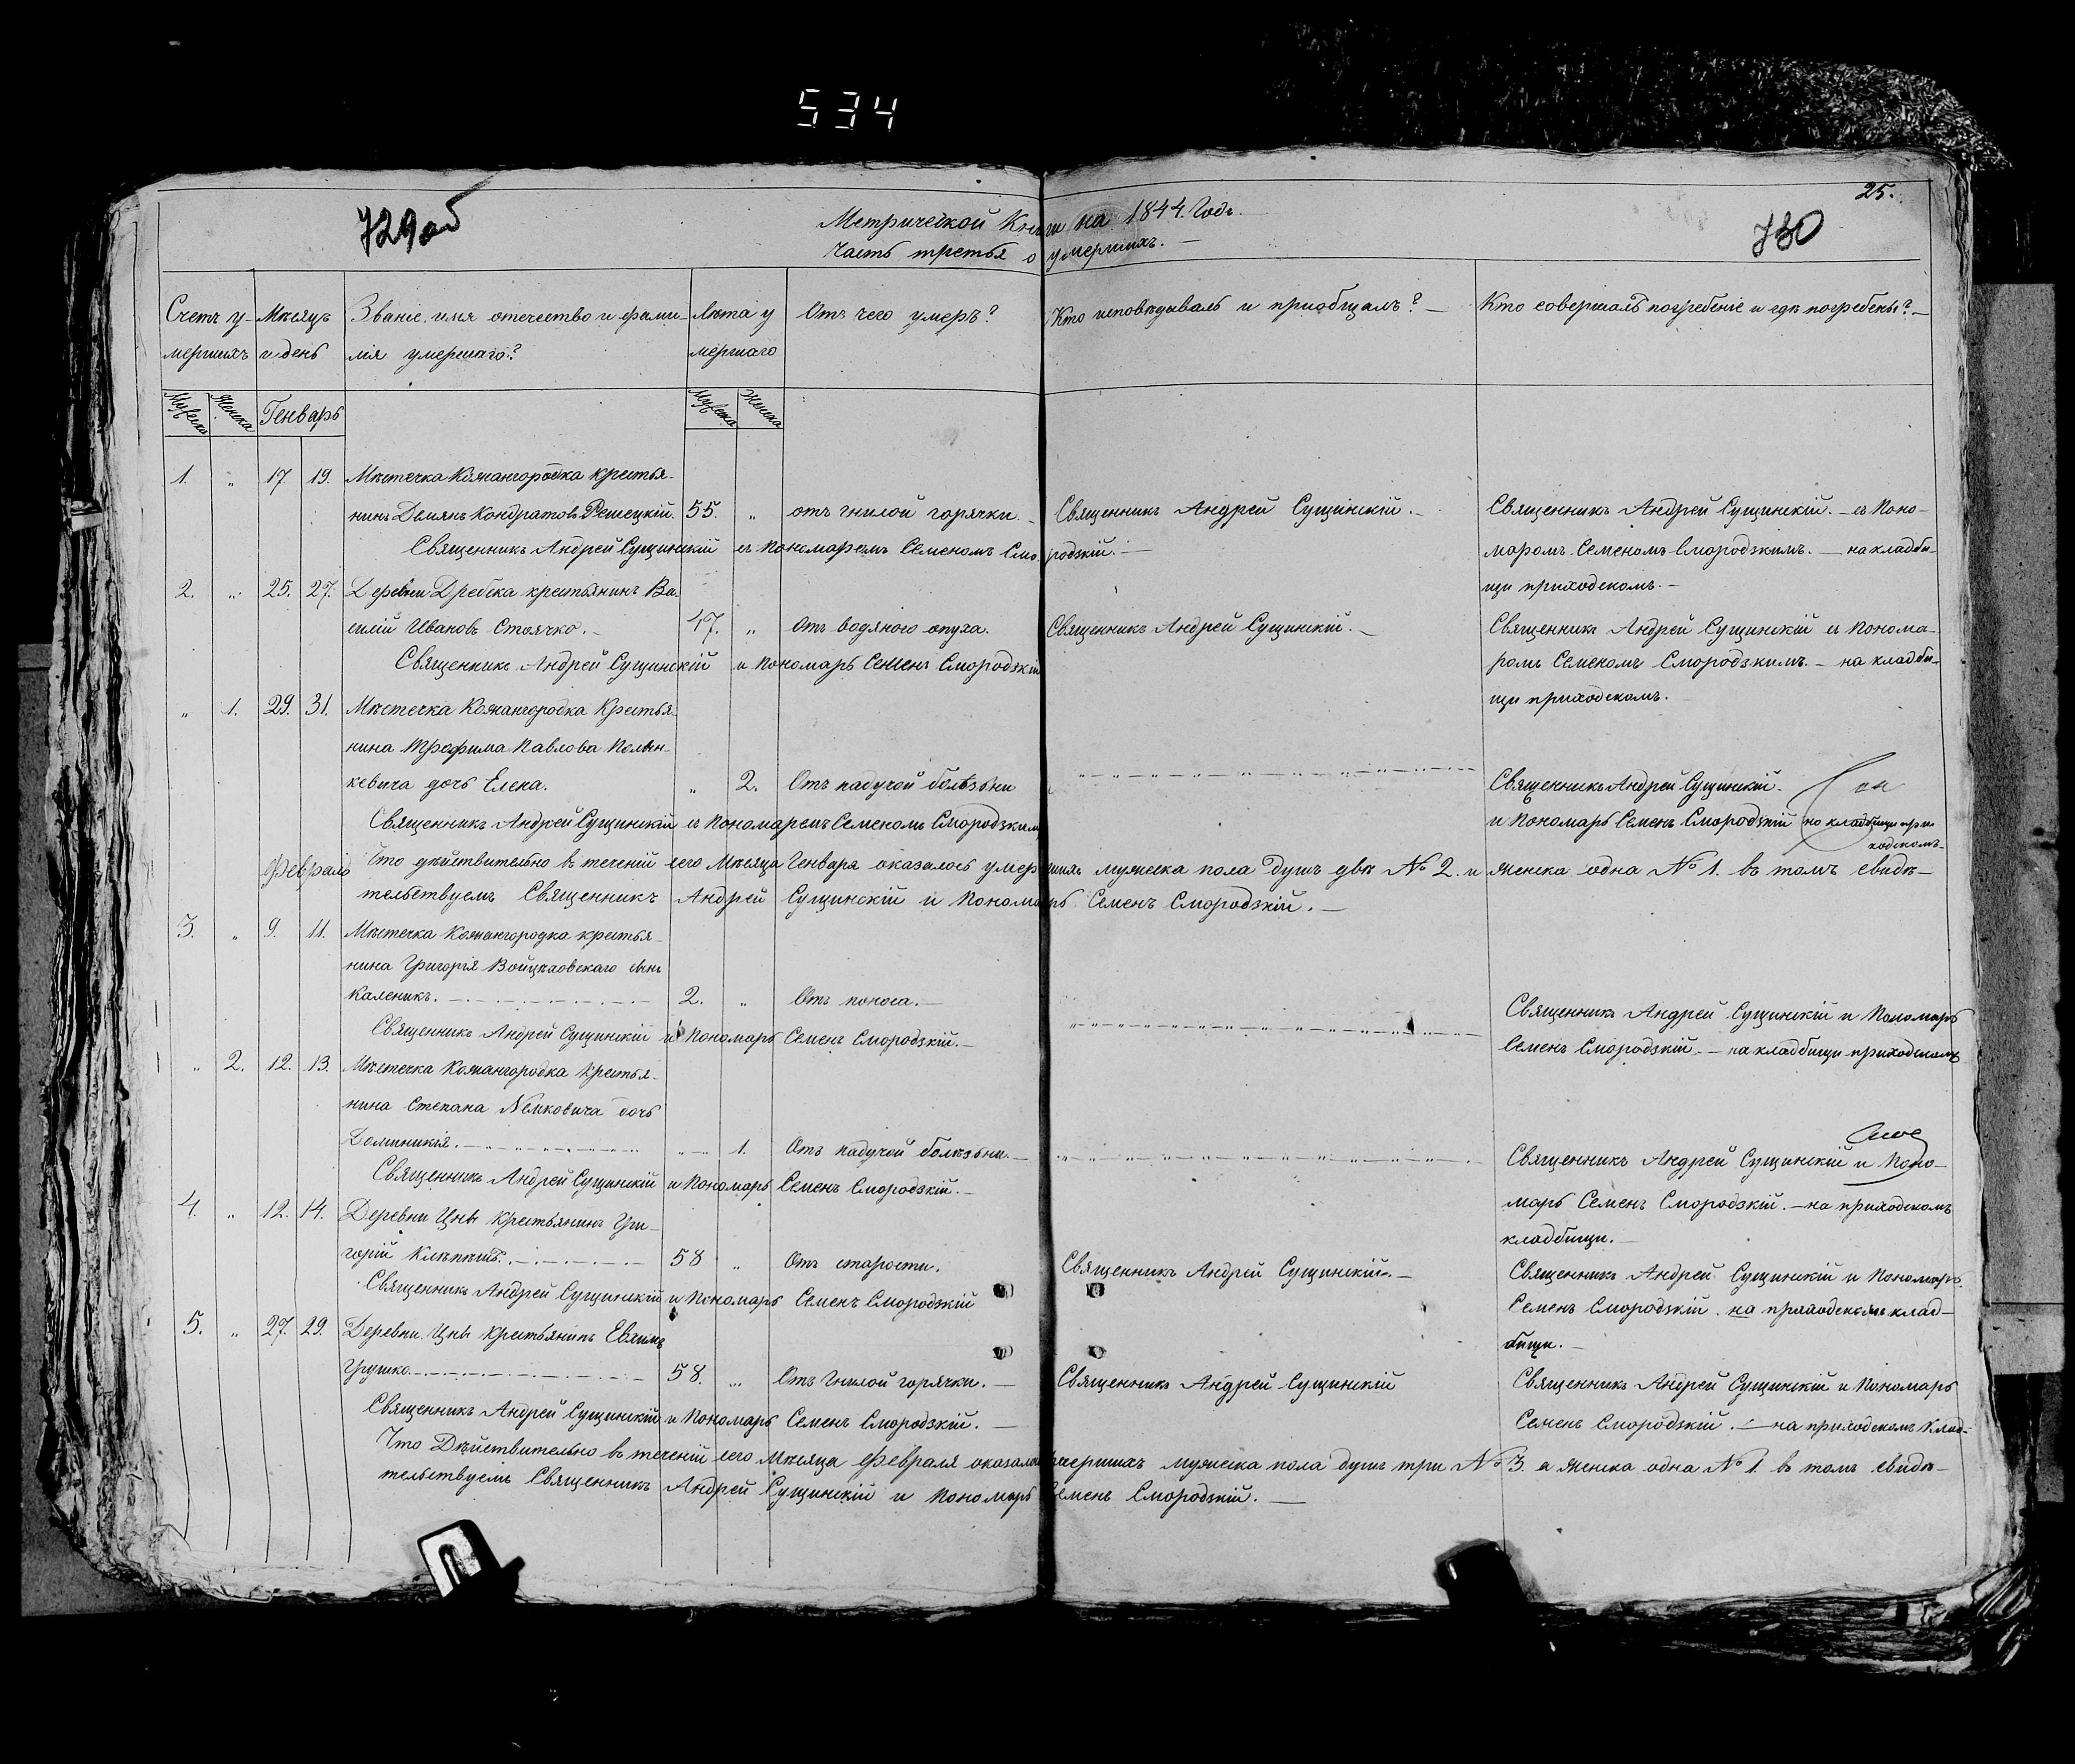 534
25.
729об
730
Метрической Книги на 1844. Годъ.
Часть третья о умершихъ. —
Счетъ у-
мершихъ
Мѣсяцъ
и день
Званіе. имя отечество и фами-
лія умершаго?
Лѣта у
мершаго
Отъ чего умеръ?
Кто исповѣдывалъ и приобщалъ? —
Кто совершалъ погребеніе и гдѣ погребены? —
Мужеска
Женска
Генварь
Мужеска
Женска
1. „ 17. 19. Мѣстечка Кожангородка крестья-
нинъ Демянъ Кондратовъ Решецкій. 55. „ отъ гнилой горячки. — Священникъ Андрей Сущинскій. — Священникъ Андрей Сущинскій. — съ Поно-
Священникъ Андрей Сущинскій съ Пономаремъ Семеномъ Смородзкій. — маромъ Семеномъ Смородзкимъ. — на кладби-
щи приходскомъ. —
2. „ 25. 27. Деревни Дребска крестьянинъ Ва-
силій Ивановъ Стоячко. — 47. „ Отъ водяного опуха. Священникъ Андрей Сущинскій. — Священникъ Андрей Сущинскій съ Понома-
Священникъ Андрей Сущинскій и Пономарь Семенъ Смородзкій ромъ Семеномъ Смородзкимъ. — на кладби-
щи приходскомъ.
„ 1. 29. 31. Мѣстечка Кожангородка Крестья-
нина Трофима Павлова Полын-
кевича дочь Елена. „ 2. Отъ падучой болѣзьни Священникъ Андрей Сущинскій.
Священникъ Андрей Сущинскій съ Пономаремъ Семеномъ Смородзким и Пономарь Семенъ Смородзкій на кладбищи при-
ходскомъ
Февраль
Что дѣйствительно въ теченій сего Мѣсяца Генваря оказалось умершихъ мужеска пола душъ двѣ № 2. и женска одна № 1. въ томъ свидѣ-
тельствуемъ Священникъ Андрей Сущинскій и Пономарь Семенъ Смородзкій. —
3. „ 9. 11. Мѣстечка Кожангородка крестья-
нина Григорія Войцѣховскаго сынъ
Каленикъ. 2. „ Отъ поноса. — Священникъ Андрей Сущинскій и Пономарь
Священникъ Андрей Сущинскій и Пономарь Семенъ Смородзкій. — Семенъ Смородзкій. — на кладбищи приходскомъ
„ 2. 12. 13. Мѣстечка Кожангородка Крестья-
нина Степана Немковича дочь
Доминикія. „ 1. Отъ падучой болѣзьни. — Священникъ Андрей Сущинскій и Поно-
Священникъ Андрей Сущинскій и Пономарь Семенъ Смородзкій. — марь Семенъ Смородзкій. — на приходскомъ
кладбищи. —
4. „ 12. 14. Деревни Цны Крестьянинъ Гри-
горій 58 „ Отъ старости. Священникъ Андрей Сущинскій. — Священникъ Андрей Сущинскій и Пономарь
Священникъ Андрей Сущинскій и Пономарь Семенъ Смородзкій Семенъ Смородзкій. на приходскомъ клад-
бищи. —
5. „ 27. 29. Деревни Цны Крестьянинъ Евхимъ
Грушко. 58. „ Отъ Гнилой горячки. — Священникъ Андрей Сущинскій Священникъ Андрей Сущинскій и Пономарь
Священникъ Андрей Сущинскій и Пономарь Семенъ Смородзкій. — Семенъ Смородзкій. — на приходскомъ Клад-
Что Дѣйствительно въ теченій сего Мѣсяца Февраля умершихъ мужеска пола душъ три № 3. а женска одна № 1. въ томъ свидѣ-
тельствуемъ Священникъ Андрей Сущинскій и Пономарь Семенъ Смородзкій. —